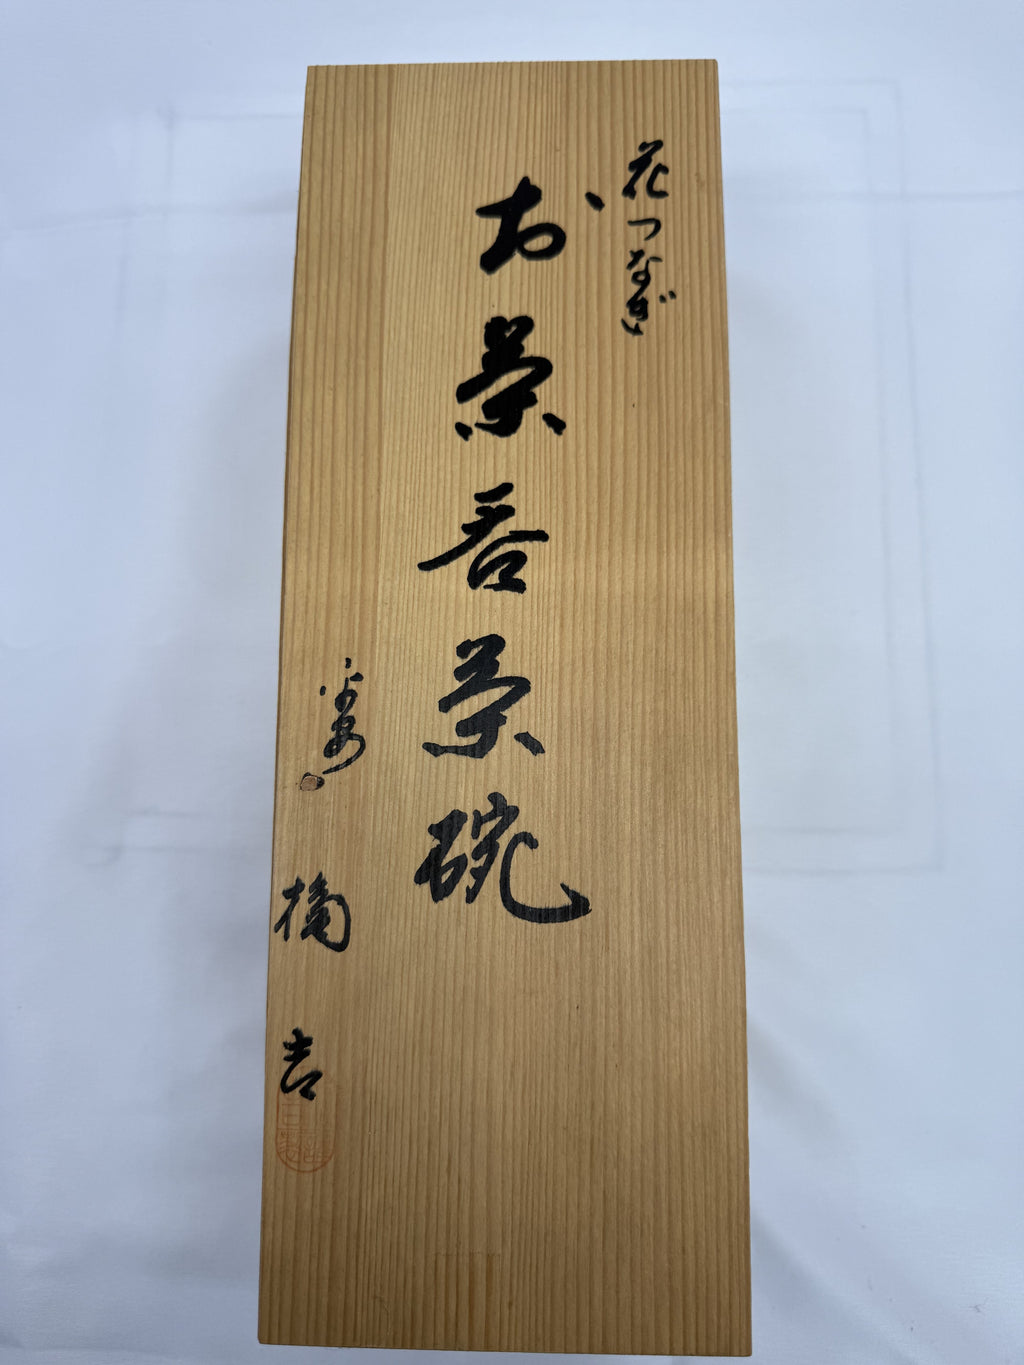 花つなぎ
お茶呑茶碗
橘吉